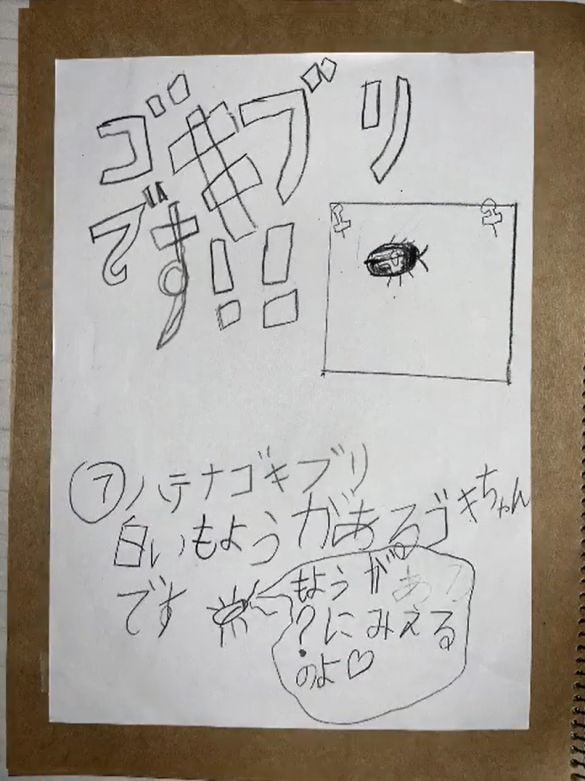 ゴキブリ
です!!
⑦ハテナゴキブリ
白いもようがあるゴキちゃん
です
もようが
?にみえる
のよ♡